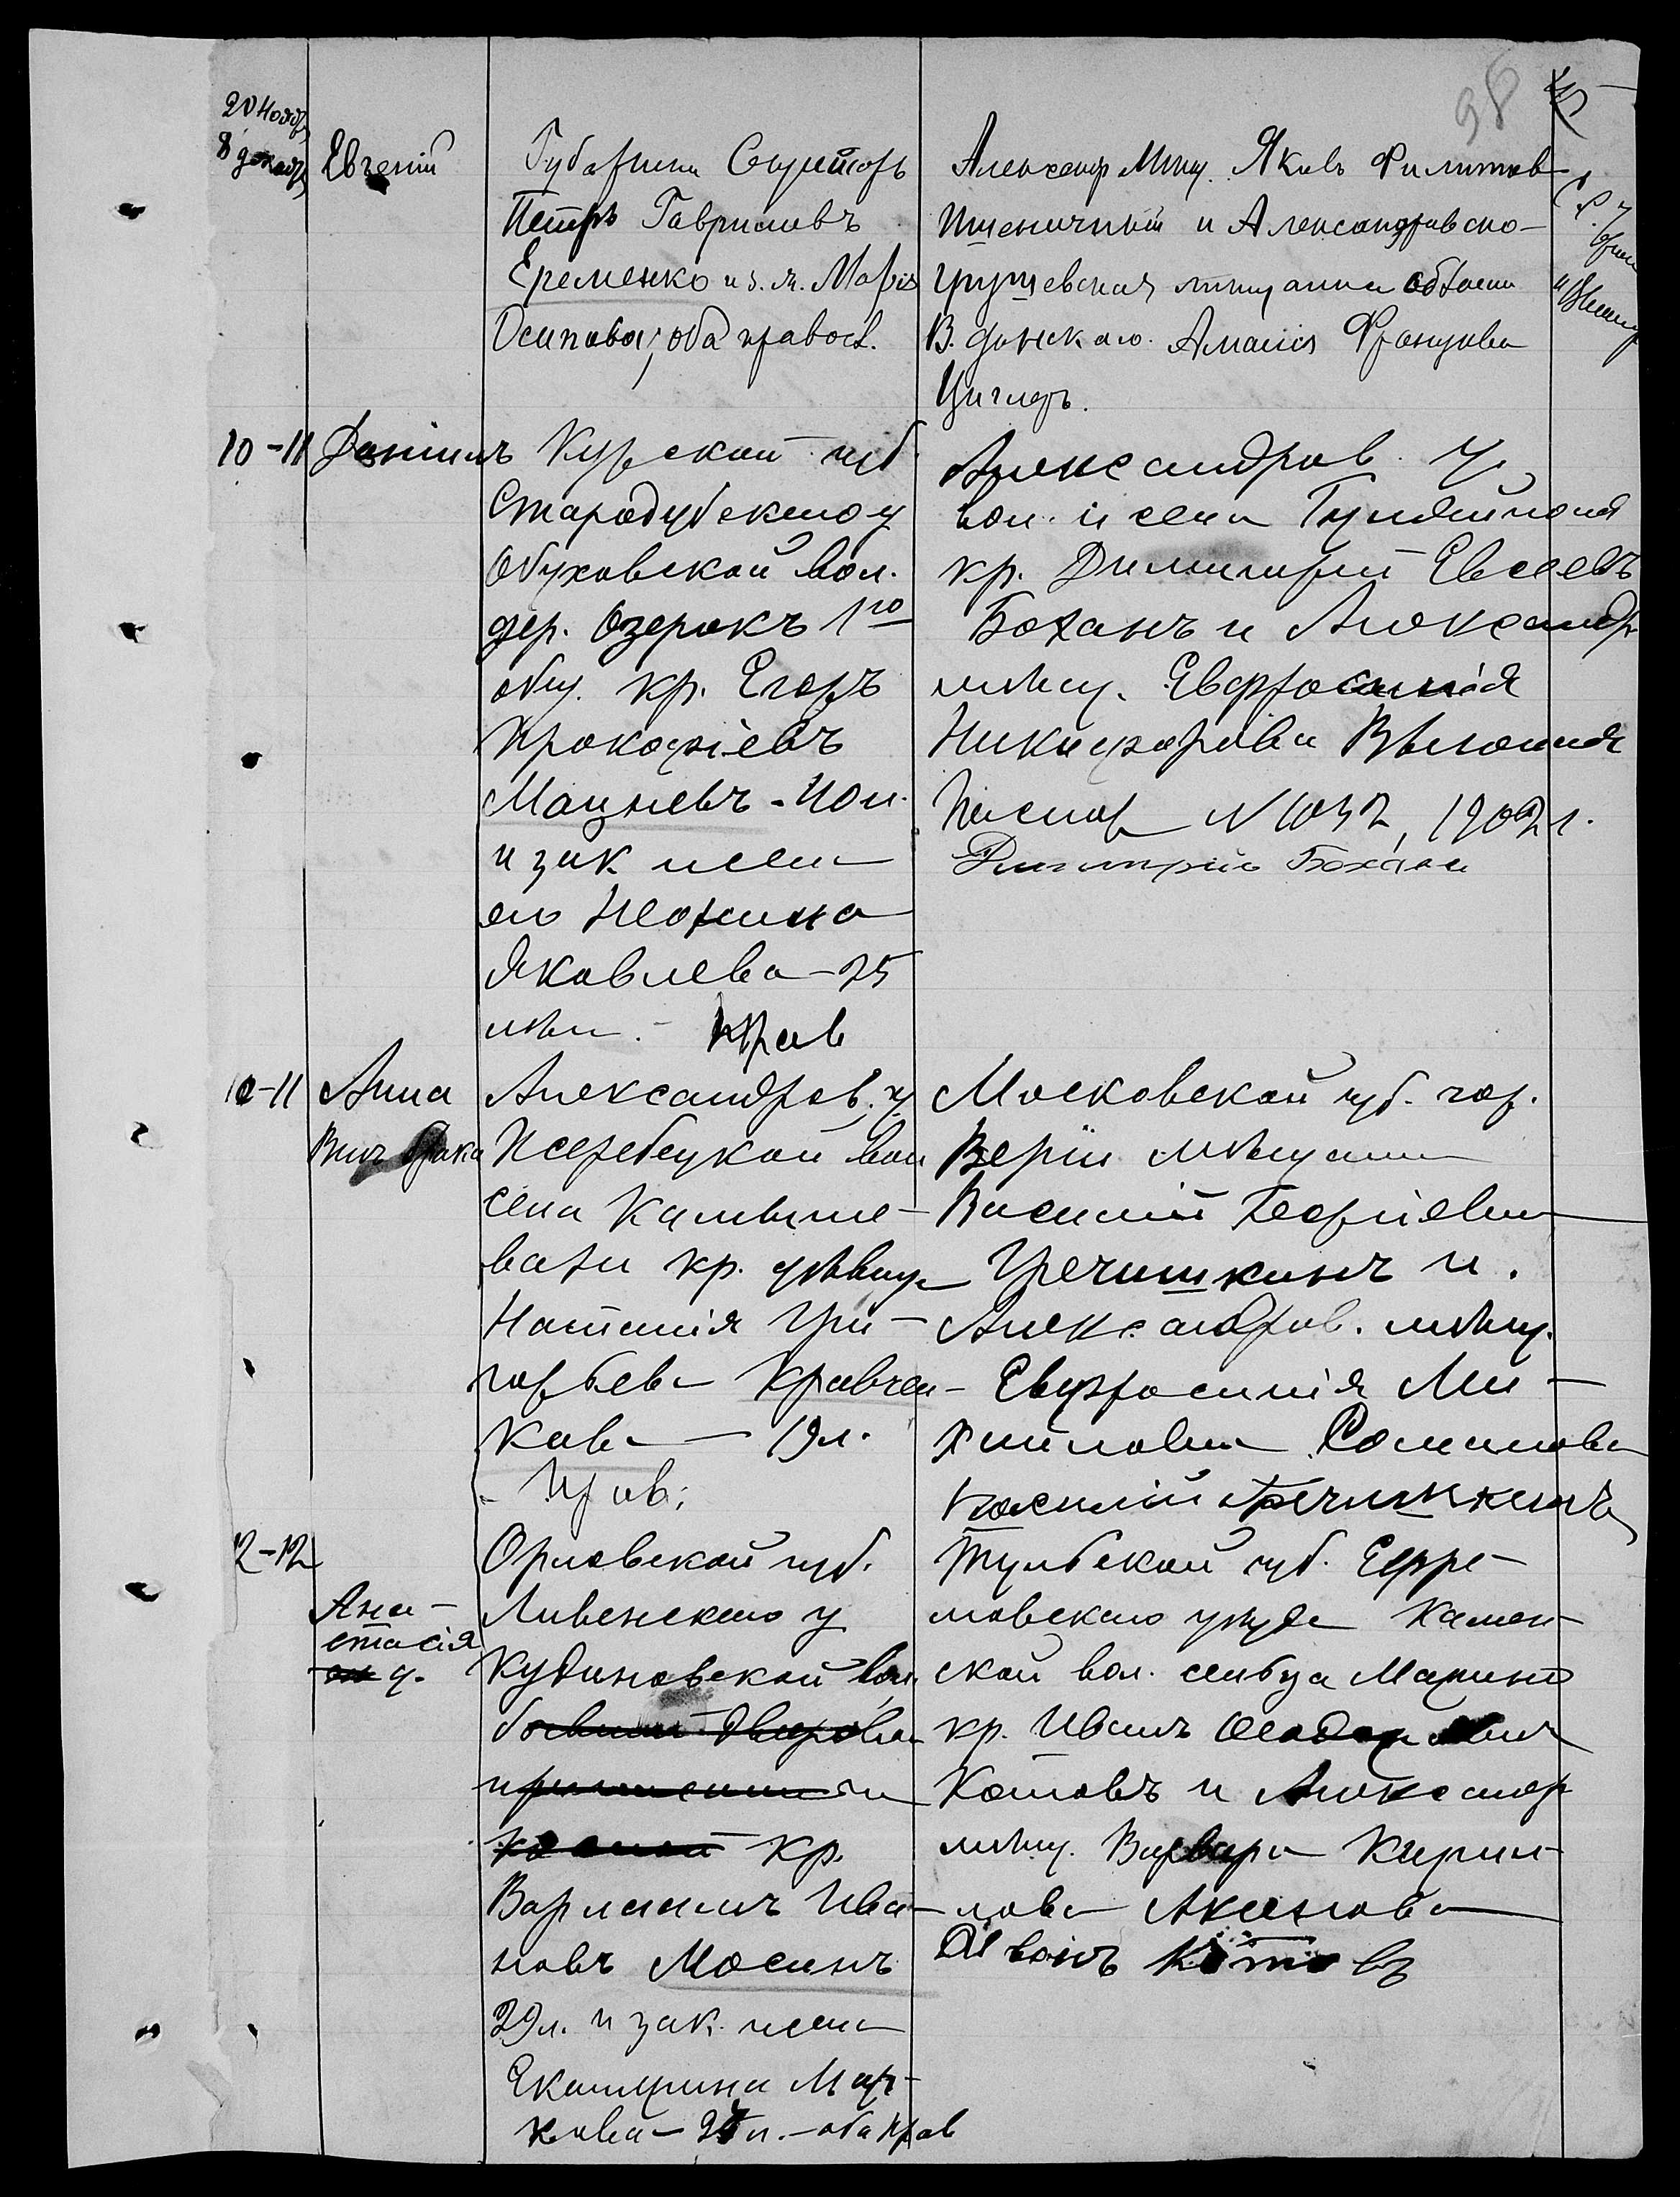 98
20 Нояб
8 декаб
Евгеній
Петръ Гавриловъ
Еременко и з. ж. Марія
Осипова, оба правосл.
Александр. Мѣщ. Яковъ Филиппов
Пшеничный и Александровско-
грушевская мѣщанка области
В. Донского. Амалія Францова
Циглеръ.
10-11
Даніилъ
Курской губ
Стародубскаго у
Обуховской вол.
дер. Озерокъ 1го
общ. кр. Егоръ
Прокофіевъ
Мацневъ - 40 л.
и зак жена
его Неонила
Яковлева - 25
лѣтъ. - Прав
Александров. у,
вол. и села Гуляйполя
кр. Димитрій Евсеевъ
Боханъ и Александр
мѣщ. Евфросинія
Никифорова
Паспор N 1032, 1902 г.
Димитрій Бохан
10-11
Анна
Внѣ брака
Александров. у
Жеребецкой вол
села Камыше-
вати кр. дѣвица
Наталія Гри-
горьева Кравчен-
кова - 19 л.
Прав;
Московской губ. гор.
Вереи мѣщанин
Василій Георгіевич
Гречишкинъ и
Александров. мѣщ.
Евфросинія Ми-
хайловна Романова
Василій Гречишкинъ
12-12
Ана-
стасія
Орловской губ.
Ливенскаго у
Кудиновской вол.
кр.
Варлаамъ Ива-
новъ Мосинъ
29 л. и зак. жена
Екатерина Мар-
кова - 27 л. - оба прав
Тульской губ. Ефре-
мовскаго уѣзда Камен-
ской вол. сельца Марьино
кр. Иванъ
Котовъ и Александр
мѣщ. Варвара Кирил-
лова Акимова
Иванъ Котовъ